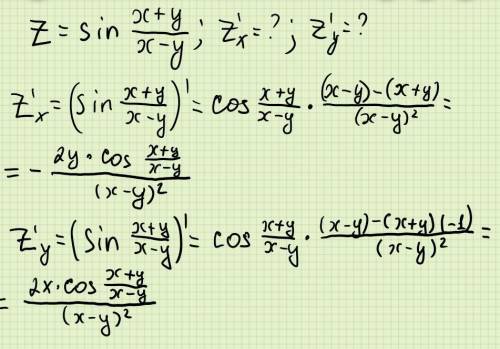 Z = sin (x+y)/(x-y) ; Z'x = ? ; Z'y = ?
Z'x = (sin (x+y)/(x-y))' = cos (x+y)/(x-y) · ((x-y)-(x+y))/(x-y)² =
= - (2y · cos (x+y)/(x-y))/(x-y)²
Z'y = (sin (x+y)/(x-y))' = cos (x+y)/(x-y) · ((x-y)-(x+y)(-1))/(x-y)² =
= (2x · cos (x+y)/(x-y))/(x-y)²